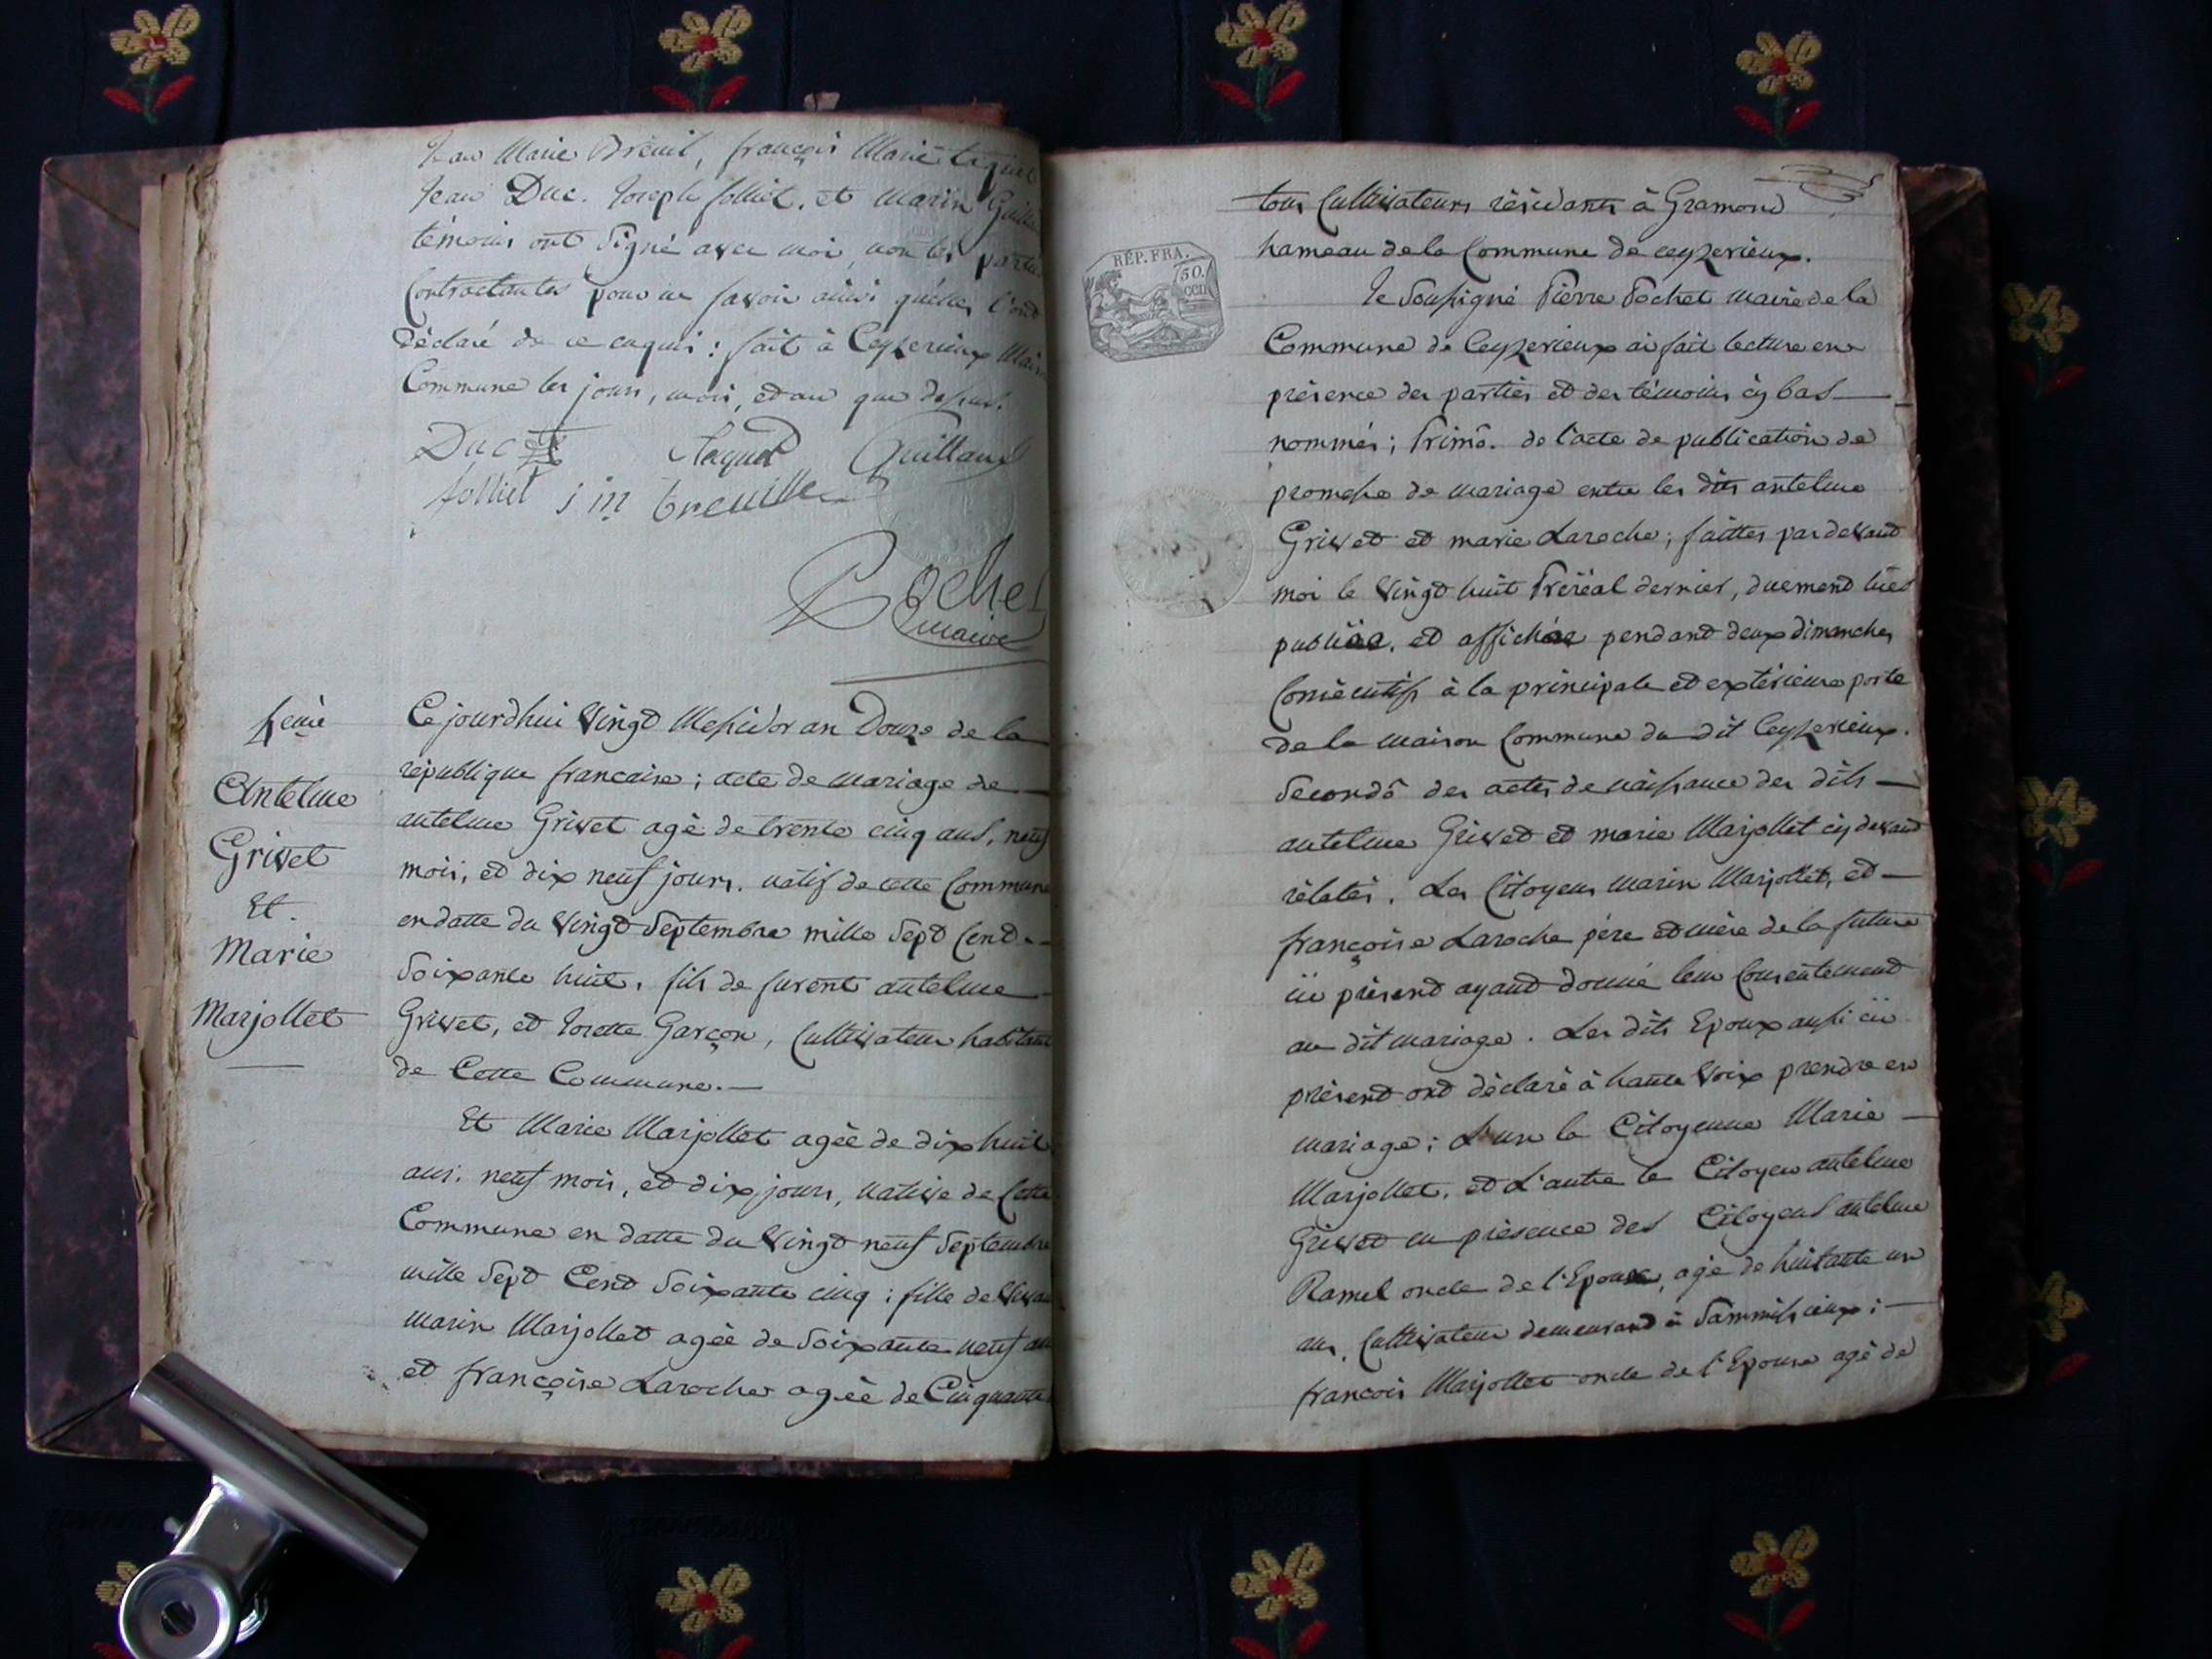 Jean Marie Breuil, françois Marie
Jean Duc. Joseph folliet, et Marin
témoins ont signé avec moi, non les
Contractantes pour ne savoir ainsi qu'elles l'ont
déclaré de ce enquis: fait à Ceyzerieux
Commune les jours, mois, et an que dessus.
Duc
Guillaud
folliet j m breuille
Pochet
maire
Antelme
Grivet
Et.
Marie
Marjollet
Ce jourdhui Vingt Messidor an Douze de la
république francaise; acte de mariage de
antelme Grivet agé de trente cinq ans, neuf
mois, et dix neuf jours. natif de cette Commune
en datte du Vingt Septembre mille Sept Cent
Soixante huit, fils de furent antelme
Grivet, et Garçon, Cultivateur habitant
de Cette Commune.
Et Marie Marjollet agée de dix huit
ans. neuf mois, et dix jours, native de Cette
Commune en datte du Vingt neuf Septembre
mille Sept Cent Soixante cinq; fille de
marin Marjollet agée de Soixante neuf an
et françoise Laroche agée de Cinquante
tous Cultivateurs résidants à Gramond
hameau de la Commune de ceyzerieux.
RÉP. FRA.
50.
CEN
Je Soussigné Pierre Pochet maire de la
Commune de Ceyzerieux ai fait lecture en
présence des parties et des témoins cy bas
nommés; Primô. de l'acte de publication de
promesse de mariage entre les dits antelme
Grivet et marie Laroche; faittes par devant
moi le Vingt huit Preréal dernier, duement lues
publiée, et affichée pendant deux dimanches
Consécutifs à la principale et extérieure porte
de la maison Commune du dit Ceyzerieux.
Secondô des actes de naissance des dits
antelme Grivet et marie Marjollet cy devant
rélatés. Les Citoyens marin Marjollet, et
françoise Laroche père et mère de la future
ici présent ayant donné leur Consentement
au dit mariage. Les dits Epoux aussi ici
présent ont déclaré à haute Voix prendre en
mariage; L'un la Citoyenne Marie
Marjollet, et L'autre le Citoyen antelme
Grivet en présence des Citoyens antelme
Ramel oncle de l'Epoux, agé de huitante un
ans, Cultivateur demeurant à
françois Marjollet oncle de l'Epouse agé de